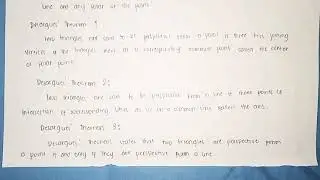 line are any other at the point.
Desargues' Theorem 1
Two triangles are said to be perspective from a point if three lines joining
vertices of the triangles meet at a corresponding common point called the center
of polar point.
Desargues' Theorem 2:
Two triangles are said to be perspective from a line if three points of
intersection of corresponding lines all lie on a common line called the axis.
Desargues' Theorem 3:
Desargues' theorem states that two triangles are perspective from
a point if and only if they are perspective from a line.